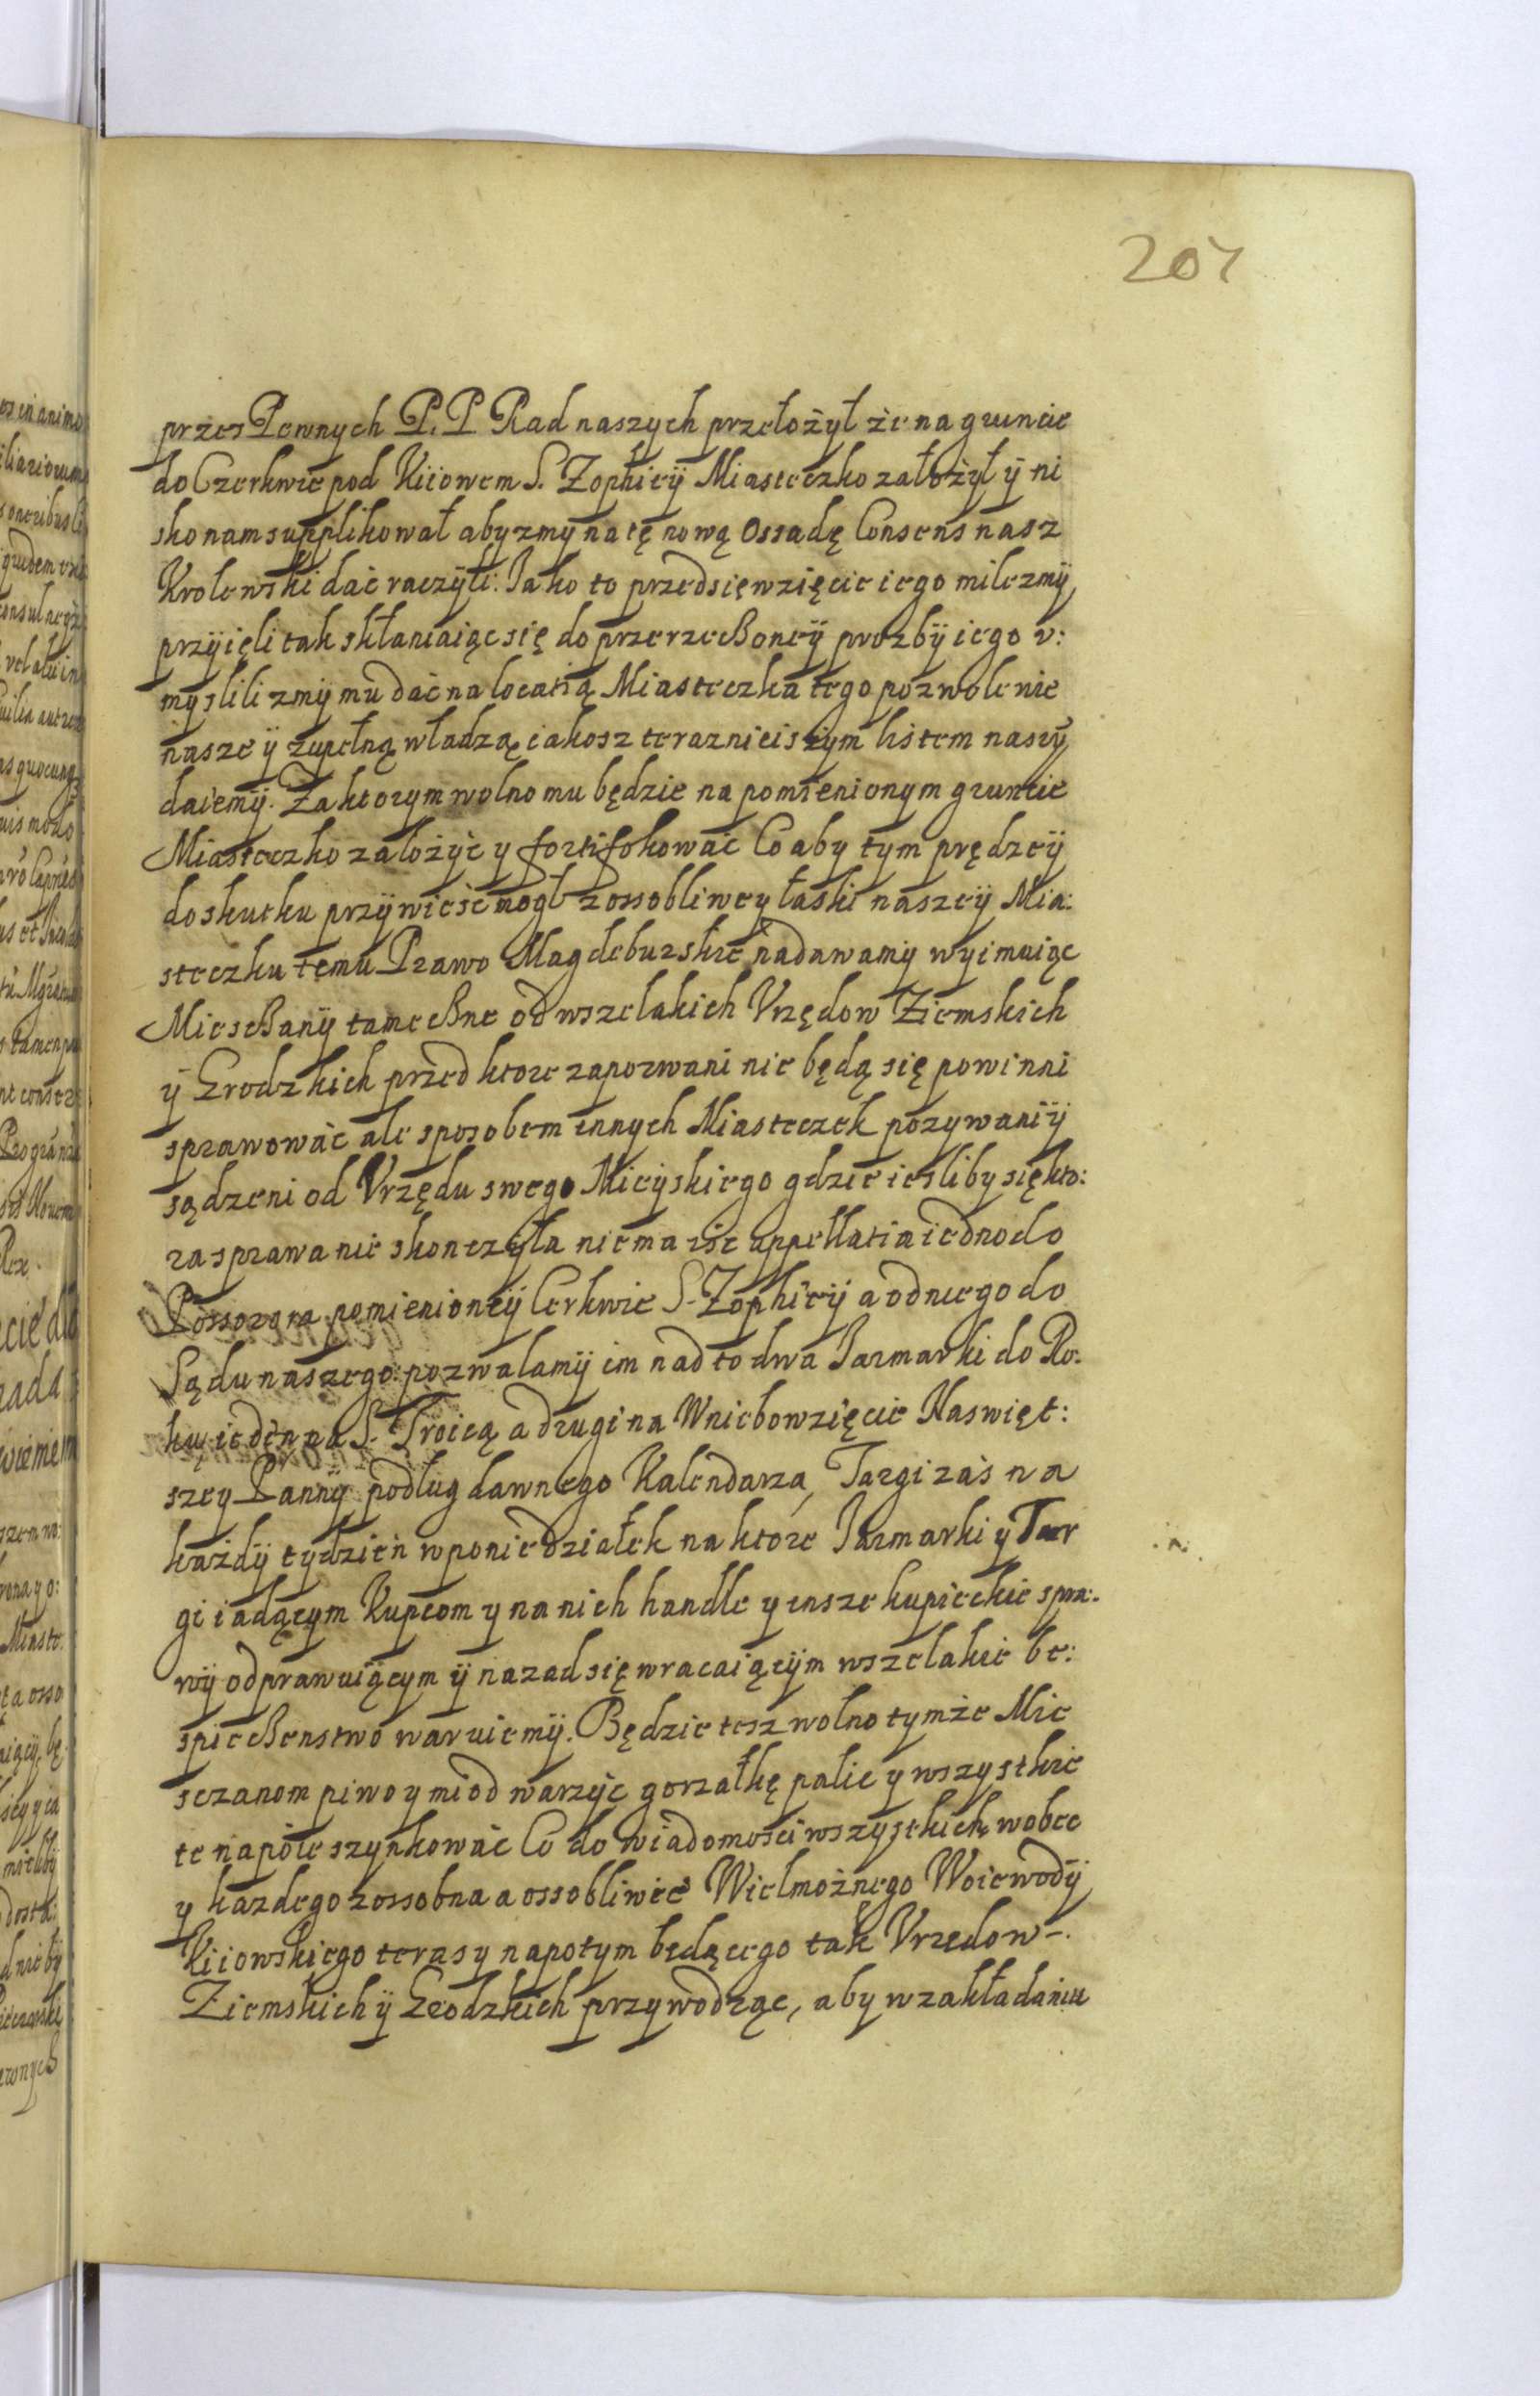 207
przes Pewnych P. P Rad naszych przełożył że na gruncie
do Czerkwie pod Kiiowem S. Zophieÿ Miasteczko założył ÿ ni
sko nam supplikował abyzmy na tę nową Ossadę Consens nasz
Krolewski dać raczyli. Jako to przedsięwzięcie iego milezmÿ
przÿięli tak skłaniaiąc się do przerzeczoneÿ prozbÿ iego v:
myslili zmÿ mu dać na locatią Miasteczka tego pozwolenie
nasze ÿ zupełną władzą iakosz teraznieiszym listem naszÿ
daiemÿ. Za ktorym wolno mu będzie na pomienionym gruncie
Miasteczko założyć y fortifokować Co aby tym prędzeÿ
do skutku przÿwieść mogł z ossobliwey łaski naszeÿ Mia:
steczku temu Prawo Magdeburskie nadawamy wyimuiąc
Miesczanÿ tameczne od wszelakich Vrzędow Ziemskich
ÿ Grodzkich przed ktore zapozwani nie będą się powinni
sprawować ale sposobem innych Miasteczek pozywani ÿ
sądzeni od Vrzędu swego Mieÿskiego gdzie iesliby się kto:
ra sprawa nie skonczyła nie ma iść appellatia iedno do
Possozora pomienioneÿ Cerkwie S. Zophieÿ a od niego do
Sądu naszego: pozwalamÿ im nad to dwa Jarmarki do Ro:
ku ieden na S. Troicą a drugi na Wniebowzięcie Naswięt:
szey Pannÿ podług dawnego Kalendarza, Targi zaś na
każdÿ tydzień w poniedziałek na ktore Jarmarki y Tar
gi iadącym Kupcom y na nich handle y insze kupieckie spra:
wÿ odprawuiącym ÿ nazad się wracaiącÿm wszelakie be:
spieczenstwo waruiemÿ. Będzie tesz wolno tymże Mie
sczanom piwo y miod warzyć gorzałkę palic y wszystkie
te napoie szynkować Co do wiadomości wszystkich wobec
y kazdego zossobna a ossobliwie Wielmożnego Woiewodÿ
Kiiowskiego teras y napotym będącego tak Vrzedow
Ziemskich ÿ Grodzkich przywodząc, aby w zakładaniu